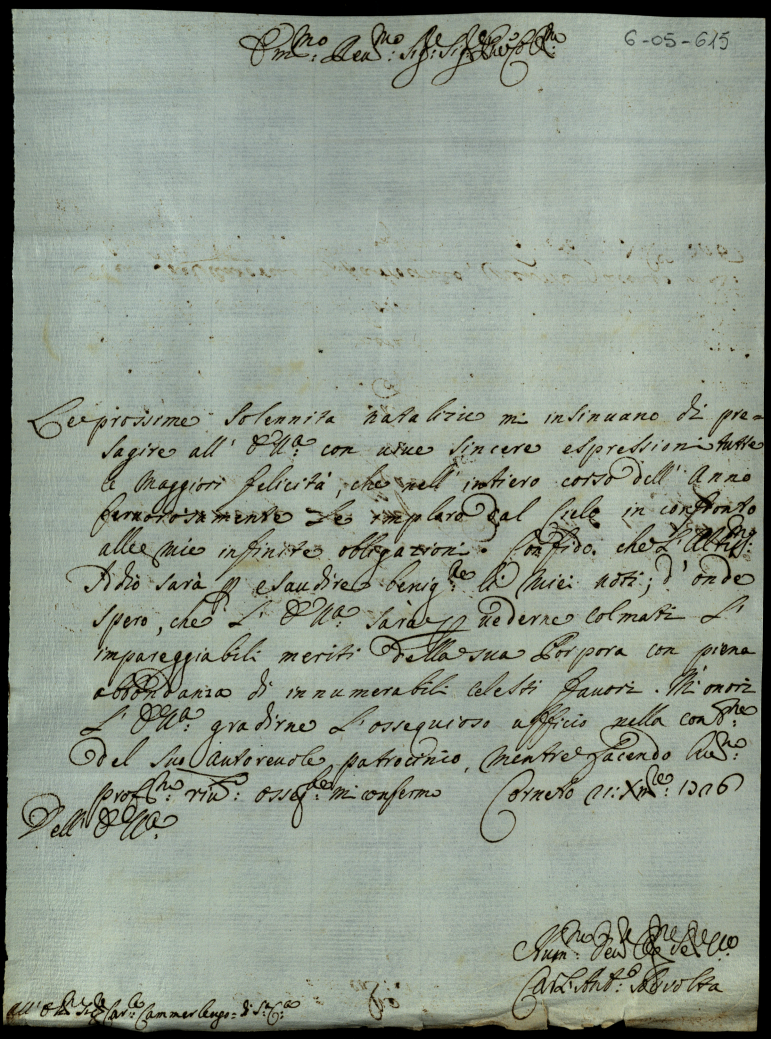 6-05-615
Em.mo Reu.mo Sig.e Sig.e Pro͠n Col.mo
Le prossime solennita natalizie mi insinuano di pre=
sagire all' E.Va con uiue sincere espressioni tutte
le maggiori felicità, che nell' intiero corso dell' Anno
feruorosamente Le imploro dal Cielo in confronto
alle mie infinite obligazioni. Confido che L' Altis.mo
Iddio sarà p esaudire benig.te li miei uoti; d' onde
spero, che L' E.Va sarà p uederne colmati L'
impareggiabili meriti della sua Porpora con piena
abbondanza di innumerabili celesti fauori. M' onori
L' E.Va gradirne L' ossequioso ufficio nella con.ne
del suo autoreuole patrocinio, mentre facendo
prof.ma riu.a osseq.te mi confermo Corneto 21: Xm.re 1726
Dell' E.Va
Hum.mo Deu.mo Se.re
Carl' Ant.o
all' Em.mo Sig.e Car.le Cammerlengo di S.ta C.a